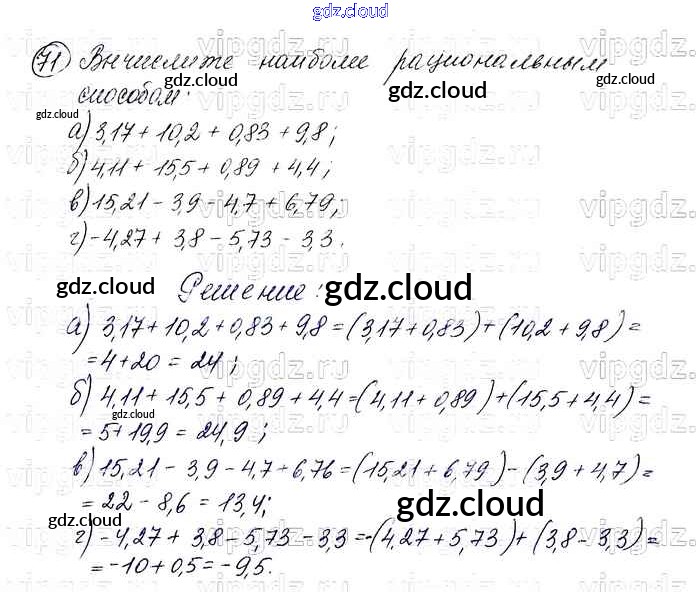 gdz.cloud
71 Вычислите наиболее рациональным
способом:
а) 3,17 + 10,2 + 0,83 + 9,8;
б) 4,11 + 15,5 + 0,89 + 4,4;
в) 15,21 - 3,9 - 4,7 + 6,79;
г) -4,27 + 3,8 - 5,73 - 3,3.
Решение:
а) 3,17 + 10,2 + 0,83 + 9,8 = (3,17 + 0,83) + (10,2 + 9,8) =
= 4 + 20 = 24;
б) 4,11 + 15,5 + 0,89 + 4,4 = (4,11 + 0,89) + (15,5 + 4,4) =
= 5 + 19,9 = 24,9;
в) 15,21 - 3,9 - 4,7 + 6,76 = (15,21 + 6,79) - (3,9 + 4,7) =
= 22 - 8,6 = 13,4;
г) -4,27 + 3,8 - 5,73 - 3,3 = -(4,27 + 5,73) + (3,8 - 3,3) =
= -10 + 0,5 = -9,5.
gdz.cloud
gdz.cloud
gdz.cloud
gdz.cloud
gdz.cloud
gdz.cloud
gdz.cloud
gdz.cloud
gdz.cloud
gdz.cloud
gdz.cloud
vipgdz.ru